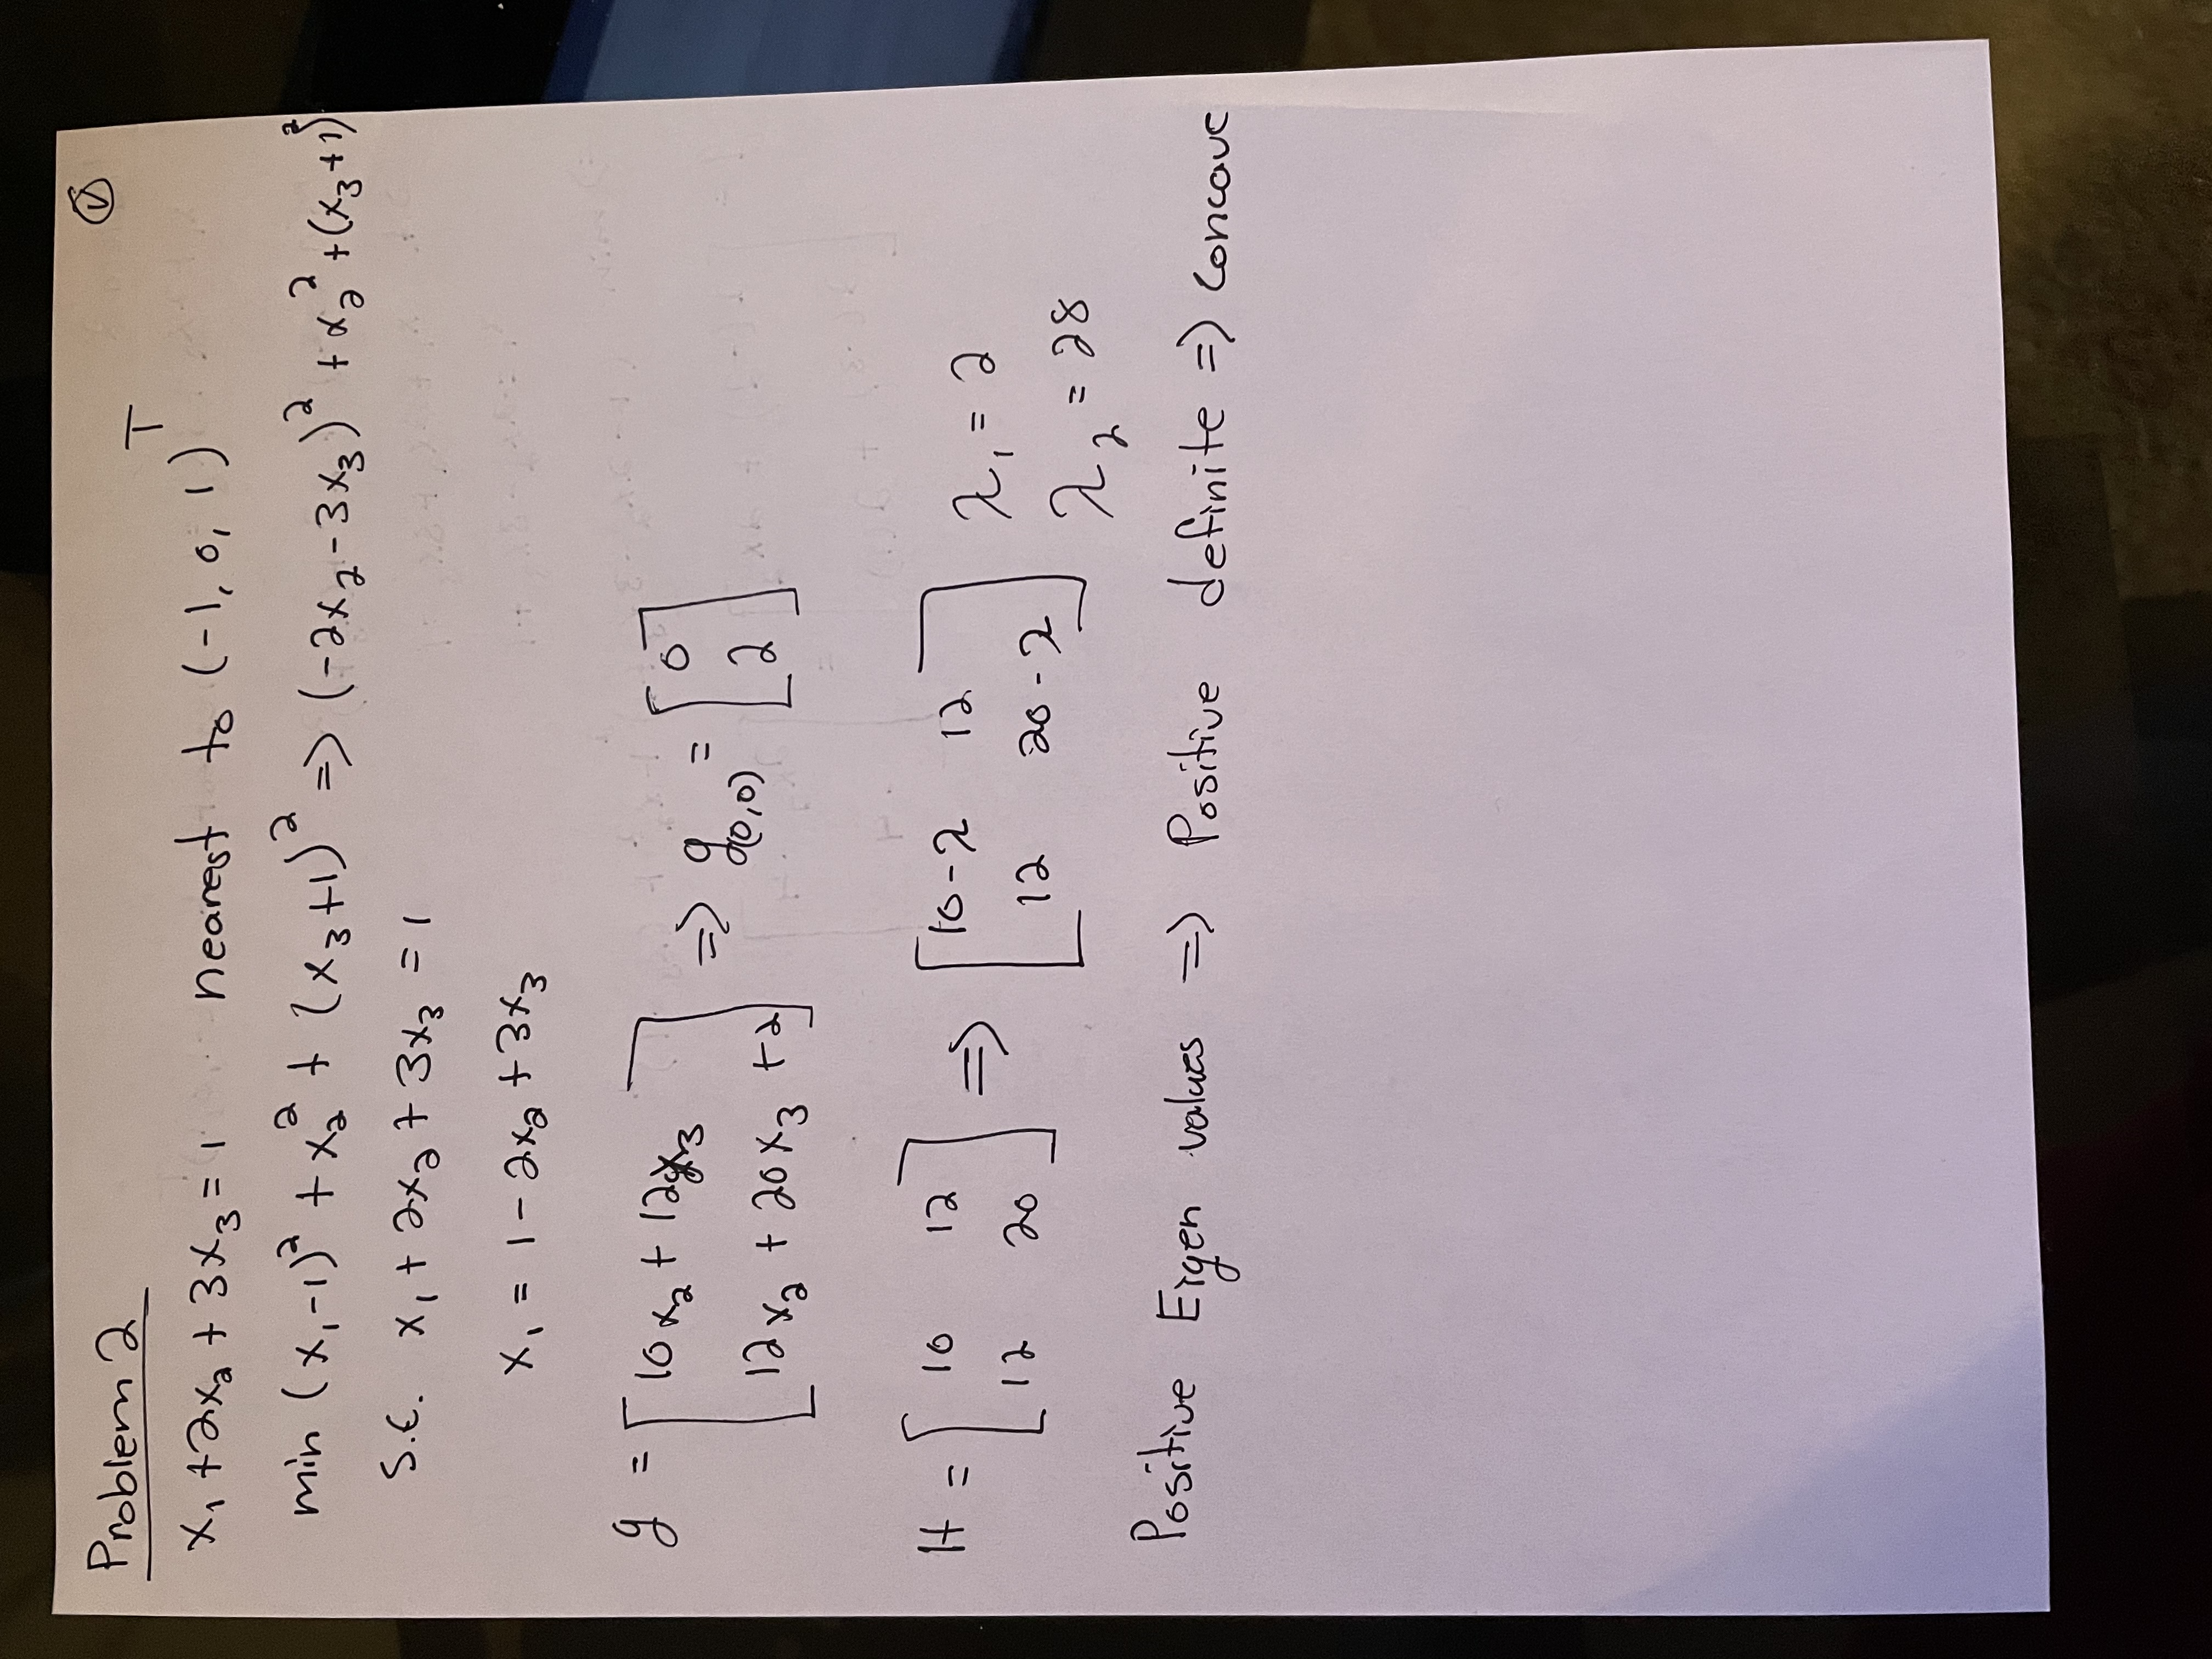 Problem 2
x₁ + 2x₂ + 3x₃ = 1 nearest to (-1, 0, 1)ᵀ
min (x₁-1)² + x₂² + (x₃+1)² => (-2x₂-3x₃)² + x₂² + (x₃+1)²
S.t. x₁ + 2x₂ + 3x₃ = 1
x₁ = 1 - 2x₂ + 3x₃
g = [10x₂ + 12x₃ ; 12x₂ + 20x₃ + 2] => g(0,0) = [0 ; 2]
H = [10 12 ; 12 20] => [10-λ 12 ; 12 20-λ] λ₁ = 2
λ₂ = 28
Positive Eigen values => Positive definite => Concave